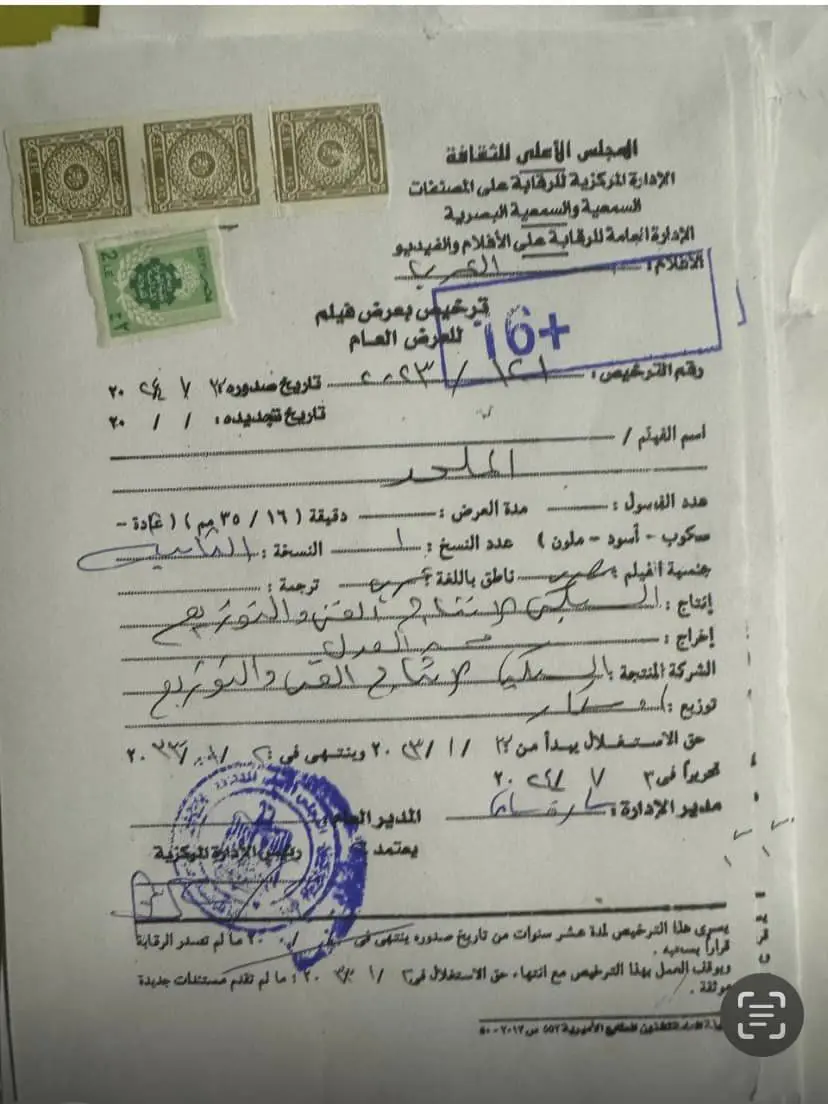 المجلس الأعلى للثقافة
الإدارة المركزية للرقابة على المصنفات
السمعية والسمعية البصرية
الإدارة العامة للرقابة على الأفلام والفيديو
الأفلام : العربى
ترخيص بعرض فيلم
للعرض العام
16+
رقم الترخيص : ١٢١ / ٢٠٢٣ تاريخ صدوره ٧ / ٢٠٢٤
تاريخ تجديده : / / ٢٠
اسم الفيلم /
الملحد
عدد الفصول : مدة العرض : دقيقة ( ١٦ / ٣٥ مم ) ( عادة -
سكوب - أسود - ملون ) عدد النسخ : ١ النسخة :
جنسية الفيلم : مصرى ناطق باللغة : عربى ترجمة :
إنتاج : السبكى لإنتاج الفنى والتوزيع
إخراج : محمد العدل
الشركة المنتجة : السبكى لإنتاج الفنى والتوزيع
توزيع :
حق الاستغلال يبدأ من / ١ / ٢٠٢٣ وينتهى فى : ٢٠٣٣
تحريرا فى ٣ / ٧ / ٢٠٢٤
مدير الإدارة : المدير العام :
يعتمد ، رئيس الإدارة المركزية
يسرى هذا الترخيص لمدة عشر سنوات من تاريخ صدوره ينتهى فى / / ٢٠ ما لم تصدر الرقابة
قراراً بسحبه .
ويوقف العمل بهذا الترخيص مع انتهاء حق الاستغلال فى / ١ / ٢٠ ؛ ما لم تقدم مستندات جديدة
موثقة .
المطابع الأميرية ٥٥٢ س ٢٠١٧ - ٥٠